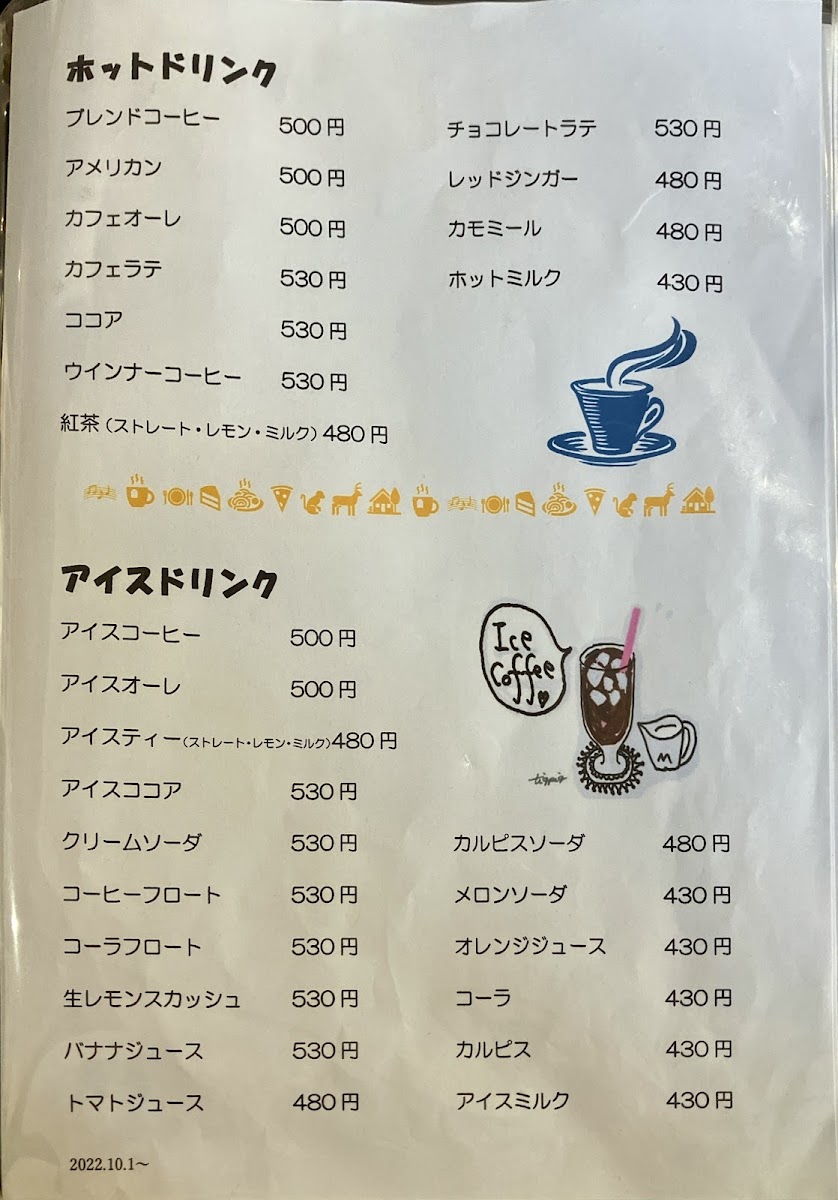 ホットドリンク
ブレンドコーヒー 500円
アメリカン 500円
カフェオーレ 500円
カフェラテ 530円
ココア 530円
ウインナーコーヒー 530円
紅茶(ストレート・レモン・ミルク)480円
チョコレートラテ 530円
レッドジンガー 480円
カモミール 480円
ホットミルク 430円
アイスドリンク
アイスコーヒー 500円
アイスオーレ 500円
アイスティー(ストレート・レモン・ミルク)480円
アイスココア 530円
クリームソーダ 530円
コーヒーフロート 530円
コーラフロート 530円
生レモンスカッシュ 530円
バナナジュース 530円
トマトジュース 480円
Ice
Coffee
M
カルピスソーダ 480円
メロンソーダ 430円
オレンジジュース 430円
コーラ 430円
カルピス 430円
アイスミルク 430円
2022.10.1～